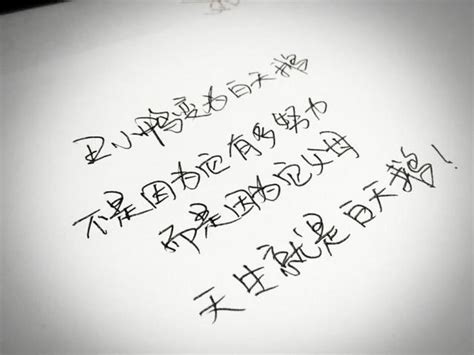 丑小鸭变为白天鹅
不是因为它有多努力
而是因为它父母
天生就是白天鹅！